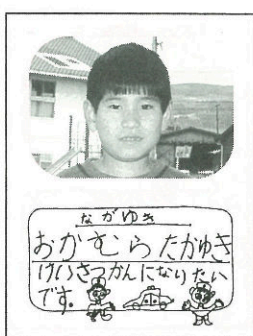 ながゆき
おかむら たかゆき
けいさつかんになりたい
です。